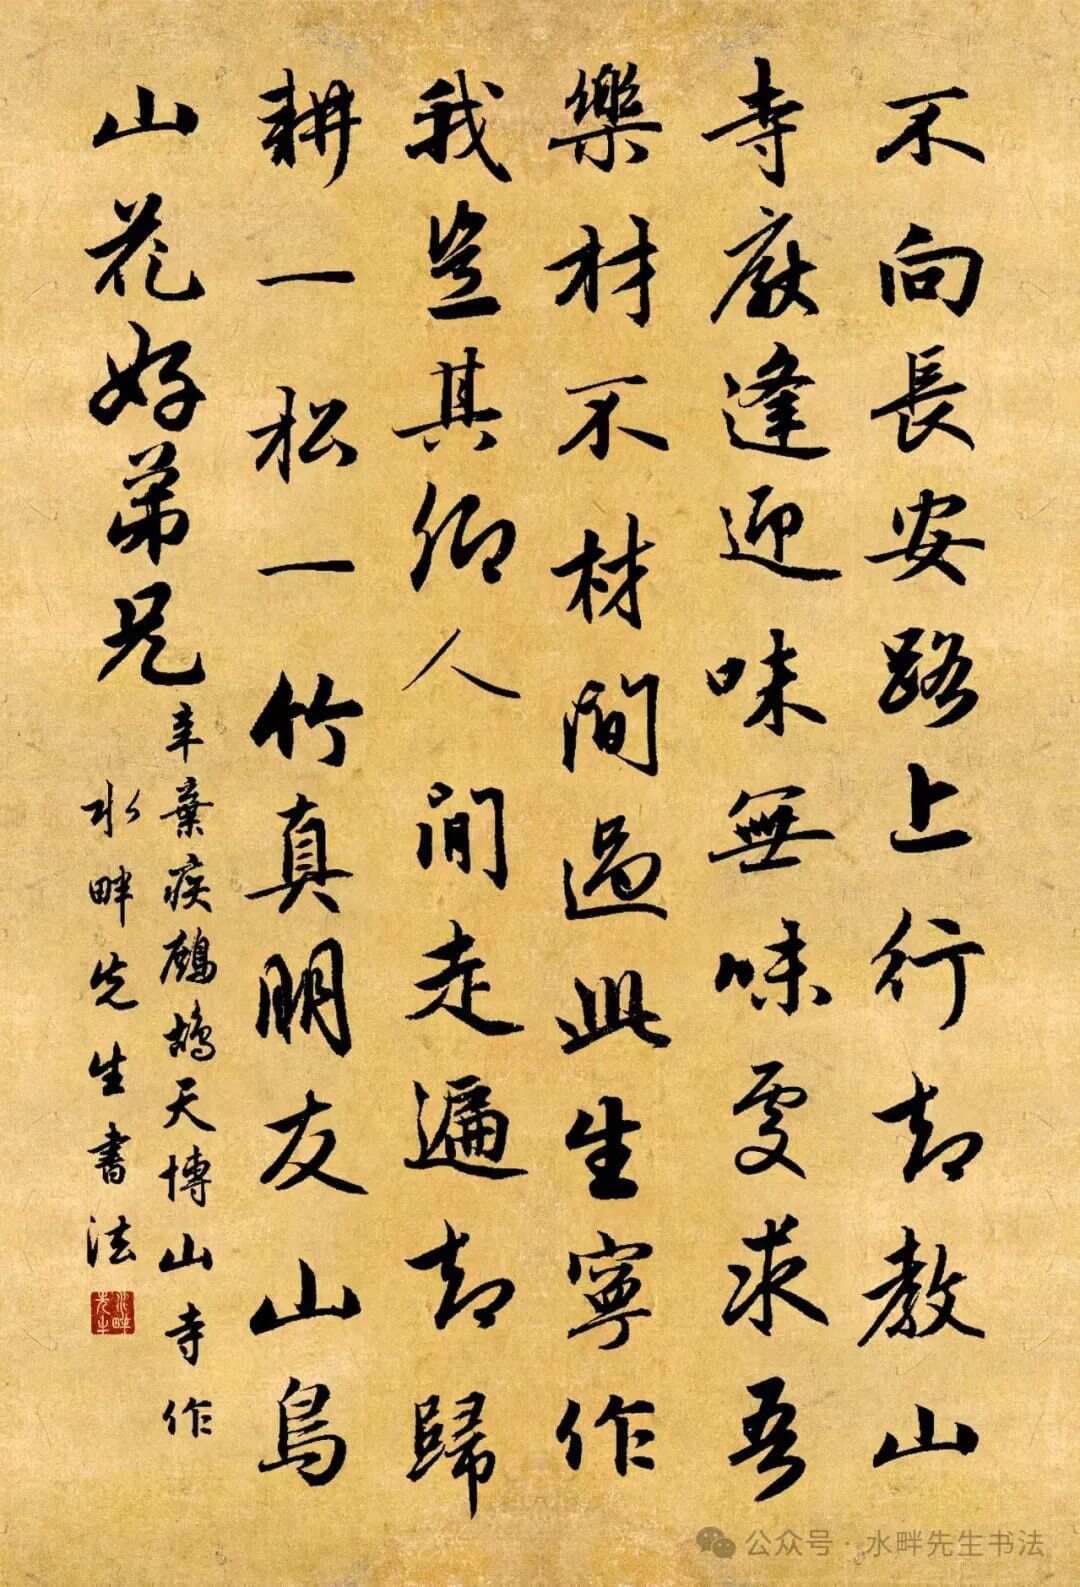 不向長安路上行却教山
寺厭逢迎味無味處求吾
樂材不材間過此生寧作
我豈其卿人間走遍却歸
耕一松一竹真朋友山鳥
山花好弟兄
辛棄疾鷓鴣天博山寺作
水畔先生書法
水畔先生
公众号 · 水畔先生书法